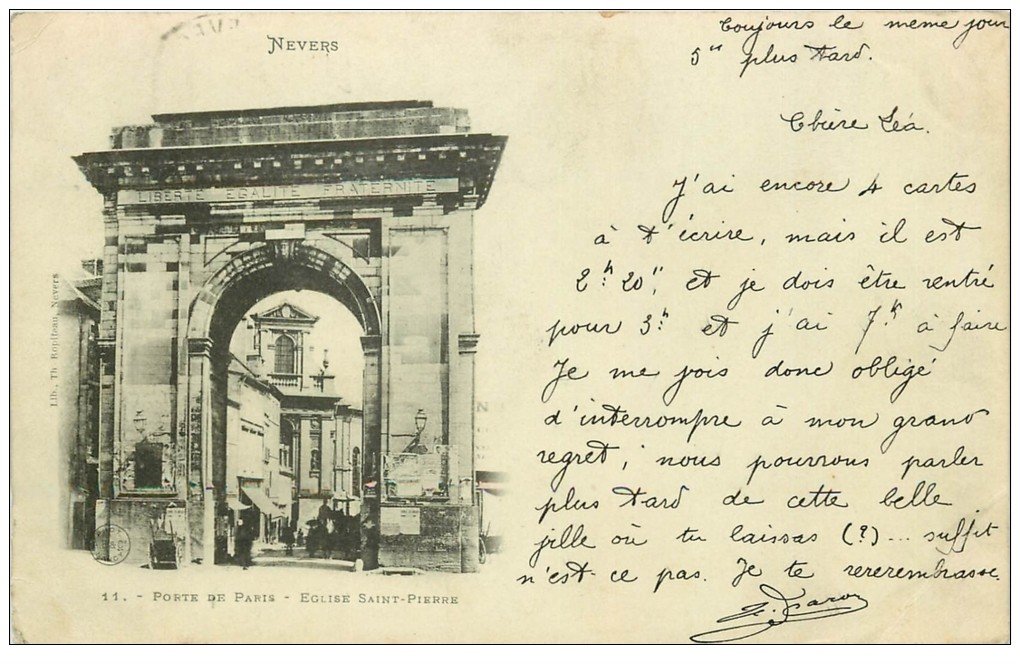 NEVERS
Toujours le meme jour
5" plus tard.
Chère Léa.
J'ai encore 4 cartes
à t'écrire, mais il est
2h 20", et je dois être rentré
pour 3h et j'ai 7k à faire
Je me vois donc obligé
d'interrompre à mon grand
regret; nous pourrons parler
plus tard de cette belle
fille où tu laissas (?)... suffit
n'est-ce pas. Je te rererembrasse.
LIBERTE EGALITE FRATERNITE
Lib. Th. Ropiteau, Nevers
11. - PORTE DE PARIS - EGLISE SAINT-PIERRE